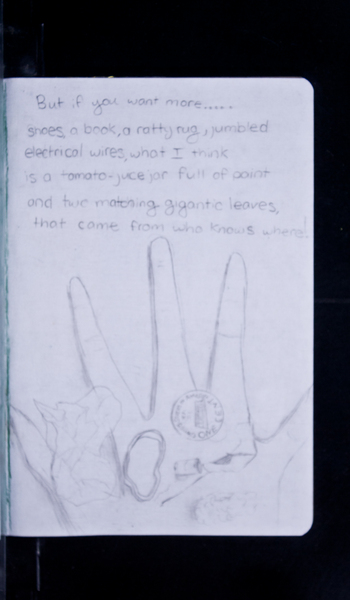 But if you want more.....
shoes, a book, a ratty rug, jumbled
electrical wires, what I think
is a tomato-juce jar full of paint
and two matching gigantic leaves,
that came from who knows where!